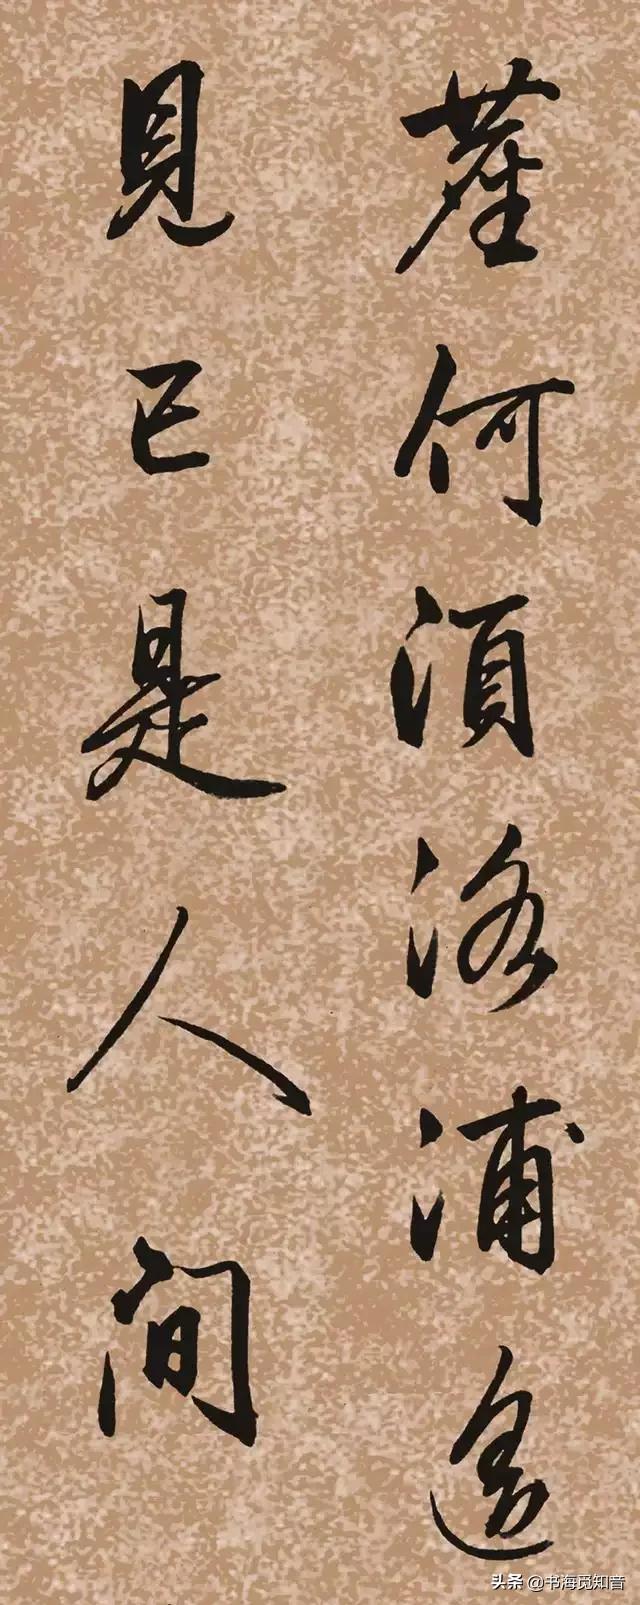 何須洛浦遥
見已是人間
头条 @书海觅知音